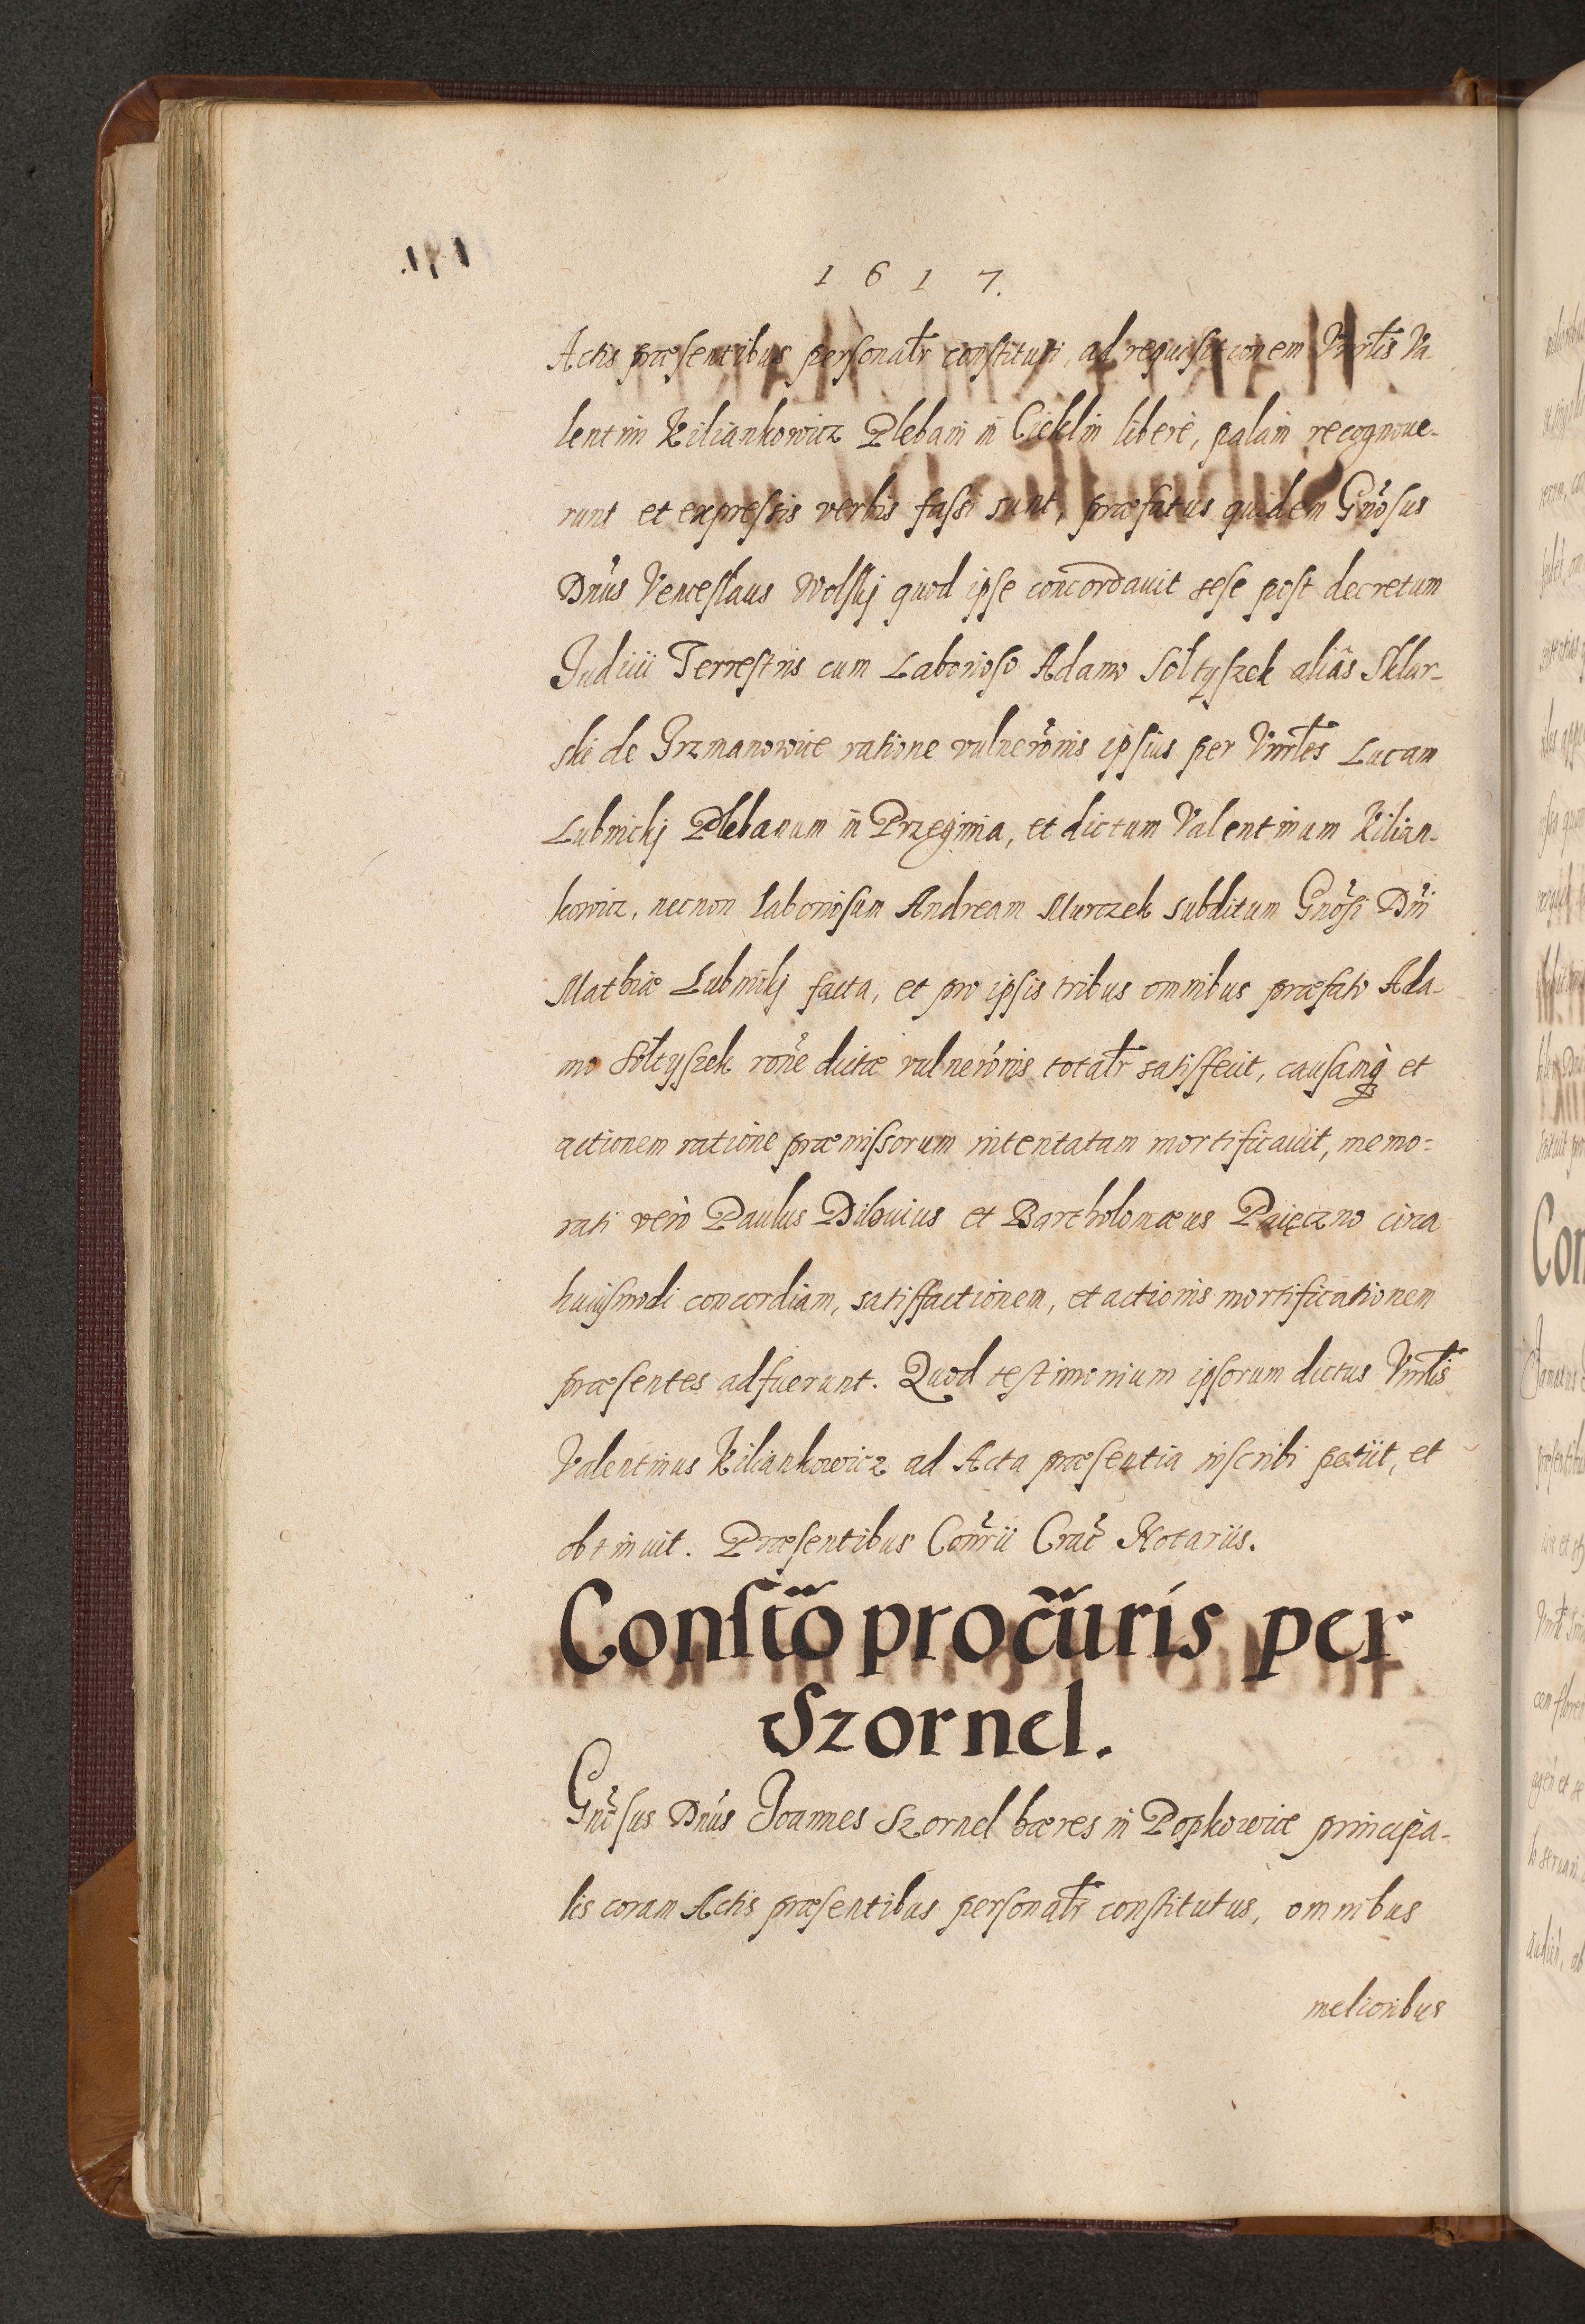 1617.
Actis præsentibus personalr̃ constituti, ad requisitionem Vnrl̃is Va-
lentini Kiliankowicz Plebani in Cieklin liberè, palàm recognoue-
runt et expressis verbis fassi sunt, præfatus quidem Gnõsus
Dnũs Venceslaus Wolskj quod ipse concordauit sese post decretum
Judicii Terrestris cum Laborioso Adamo Sołtyszek aliàs Sklar-
ski de Jrzmanowice ratione vulnerõnis ipsius per Vnrl̃es Lucam
Lubnickj Plebanum in Przeginia, et dictum Valentinum Kilian-
kowicz, necnon laboriosum Andream Murczek subditum Gnõsi Dnĩ
Mathiæ Lubnickj facta, et pro ipsis tribus omnibus præfato Ada-
mo Sołtyszek rõne dictæ vulnerõnis totalr̃ satisfecit, causamq́ et
actionem ratione præmissorum intentatam mortificauit, memo=
rati verò Paulus Dibuius et Bartholomæus Paięczno circa
huiusmodi concordiam, satisfactionem, et actionis mortificationem
præsentes adfuerunt. Quod testimonium ipsorum dictus Vnrl̃is
Valentinus Kiliankowicz ad Acta præsentia inscribi petiit, et
obtinuit. Præsentibus Conr̃ii Crac̃ Notariis.
Constc̃õ procũris per
Szornel.
Gnõsus Dnũs Joannes Szornel hæres in Popkowice principa-
lis coram Actis præsentibus personalr̃ constitutus, omnibus
melioribus